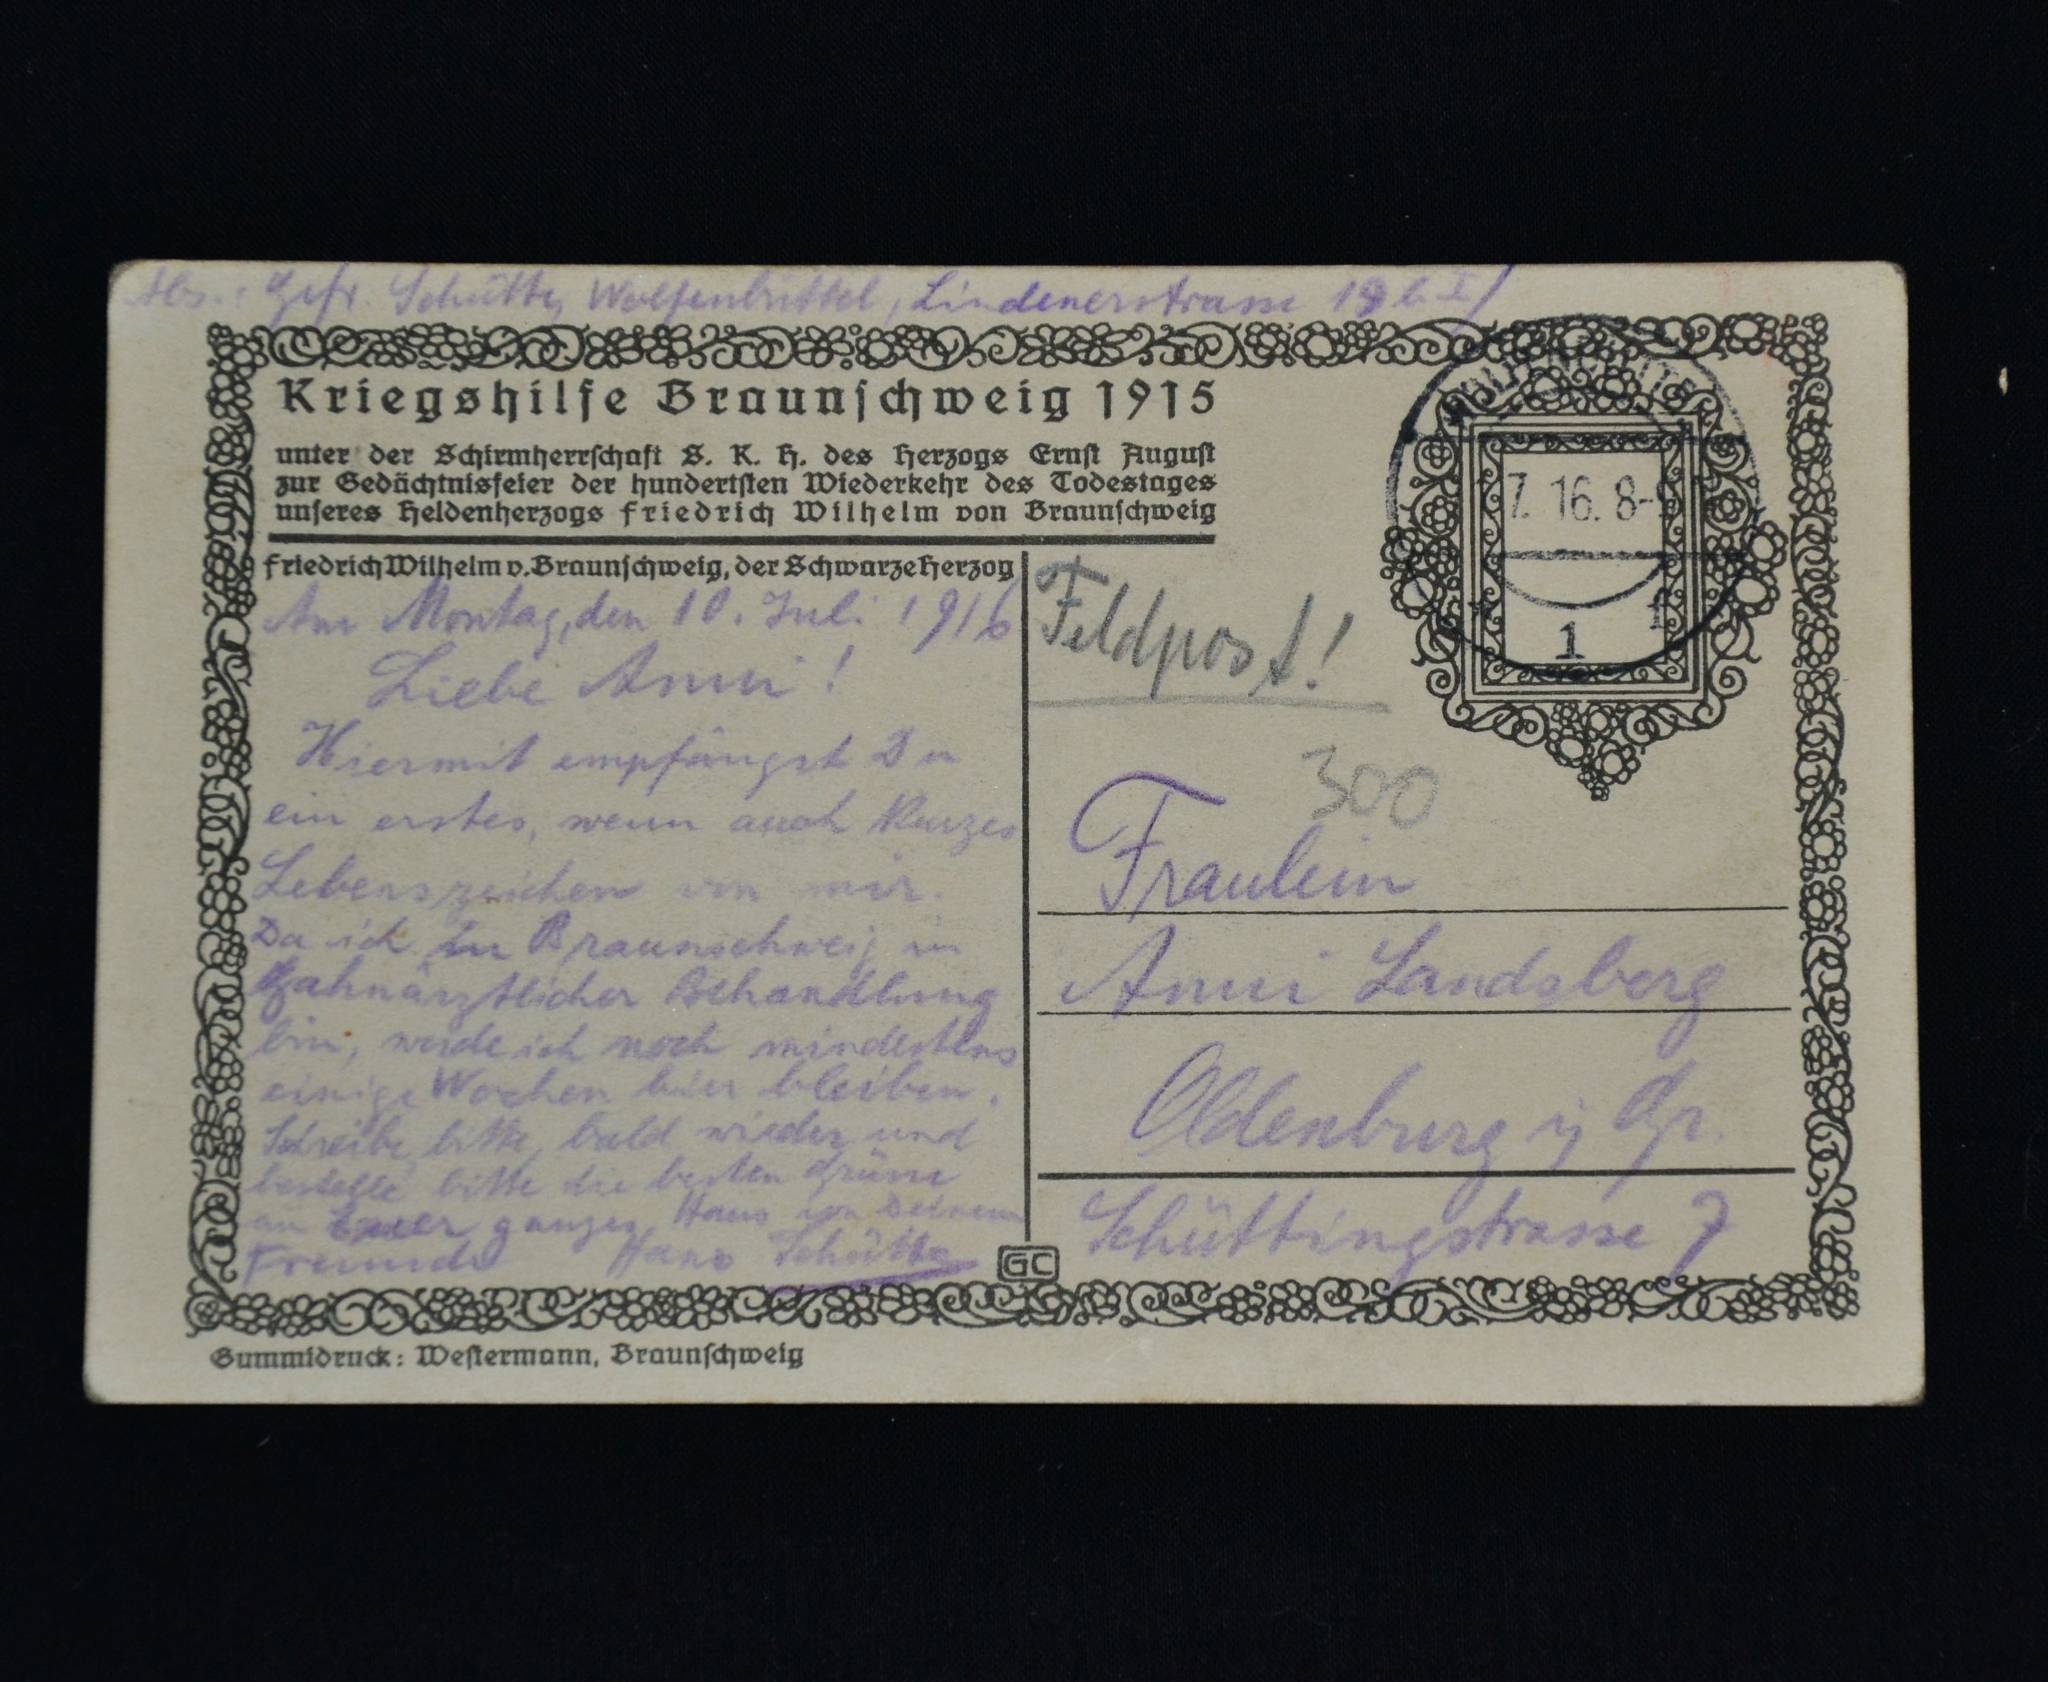 Abs.: Gefr. Schütte, Wolfenbüttel, Lindenerstrasse 19 b I/
Kriegshilfe Braunschweig 1915
unter der Schirmherrschaft S. K. H. des Herzogs Ernst August
zur Gedächtnisfeier der hundertsten Wiederkehr des Todestages
unseres Heldenherzogs Friedrich Wilhelm von Braunschweig
Friedrich Wilhelm v. Braunschweig, der Schwarze Herzog
Am Montag, den 10. Juli 1916
Liebe Anni!
Hiermit empfängst Du
ein erstes, wenn auch kurzes
Lebenszeichen von mir.
Da ich in Braunschweig in
zahnärztlicher Behandlung
bin, werde ich noch mindestens
einige Wochen hier bleiben.
Schreibe, bitte, bald wieder und
bestelle bitte die besten Grüsse
an Euer ganzes Haus von Deinem
Freunde Hans Schütte
7. 16. 8-9
1
Feldpost!
300
Fräulein
Anni Landsberg
Oldenburg i/ Gr.
Schüttingstrasse 7
GC
Gummidruck: Westermann, Braunschweig